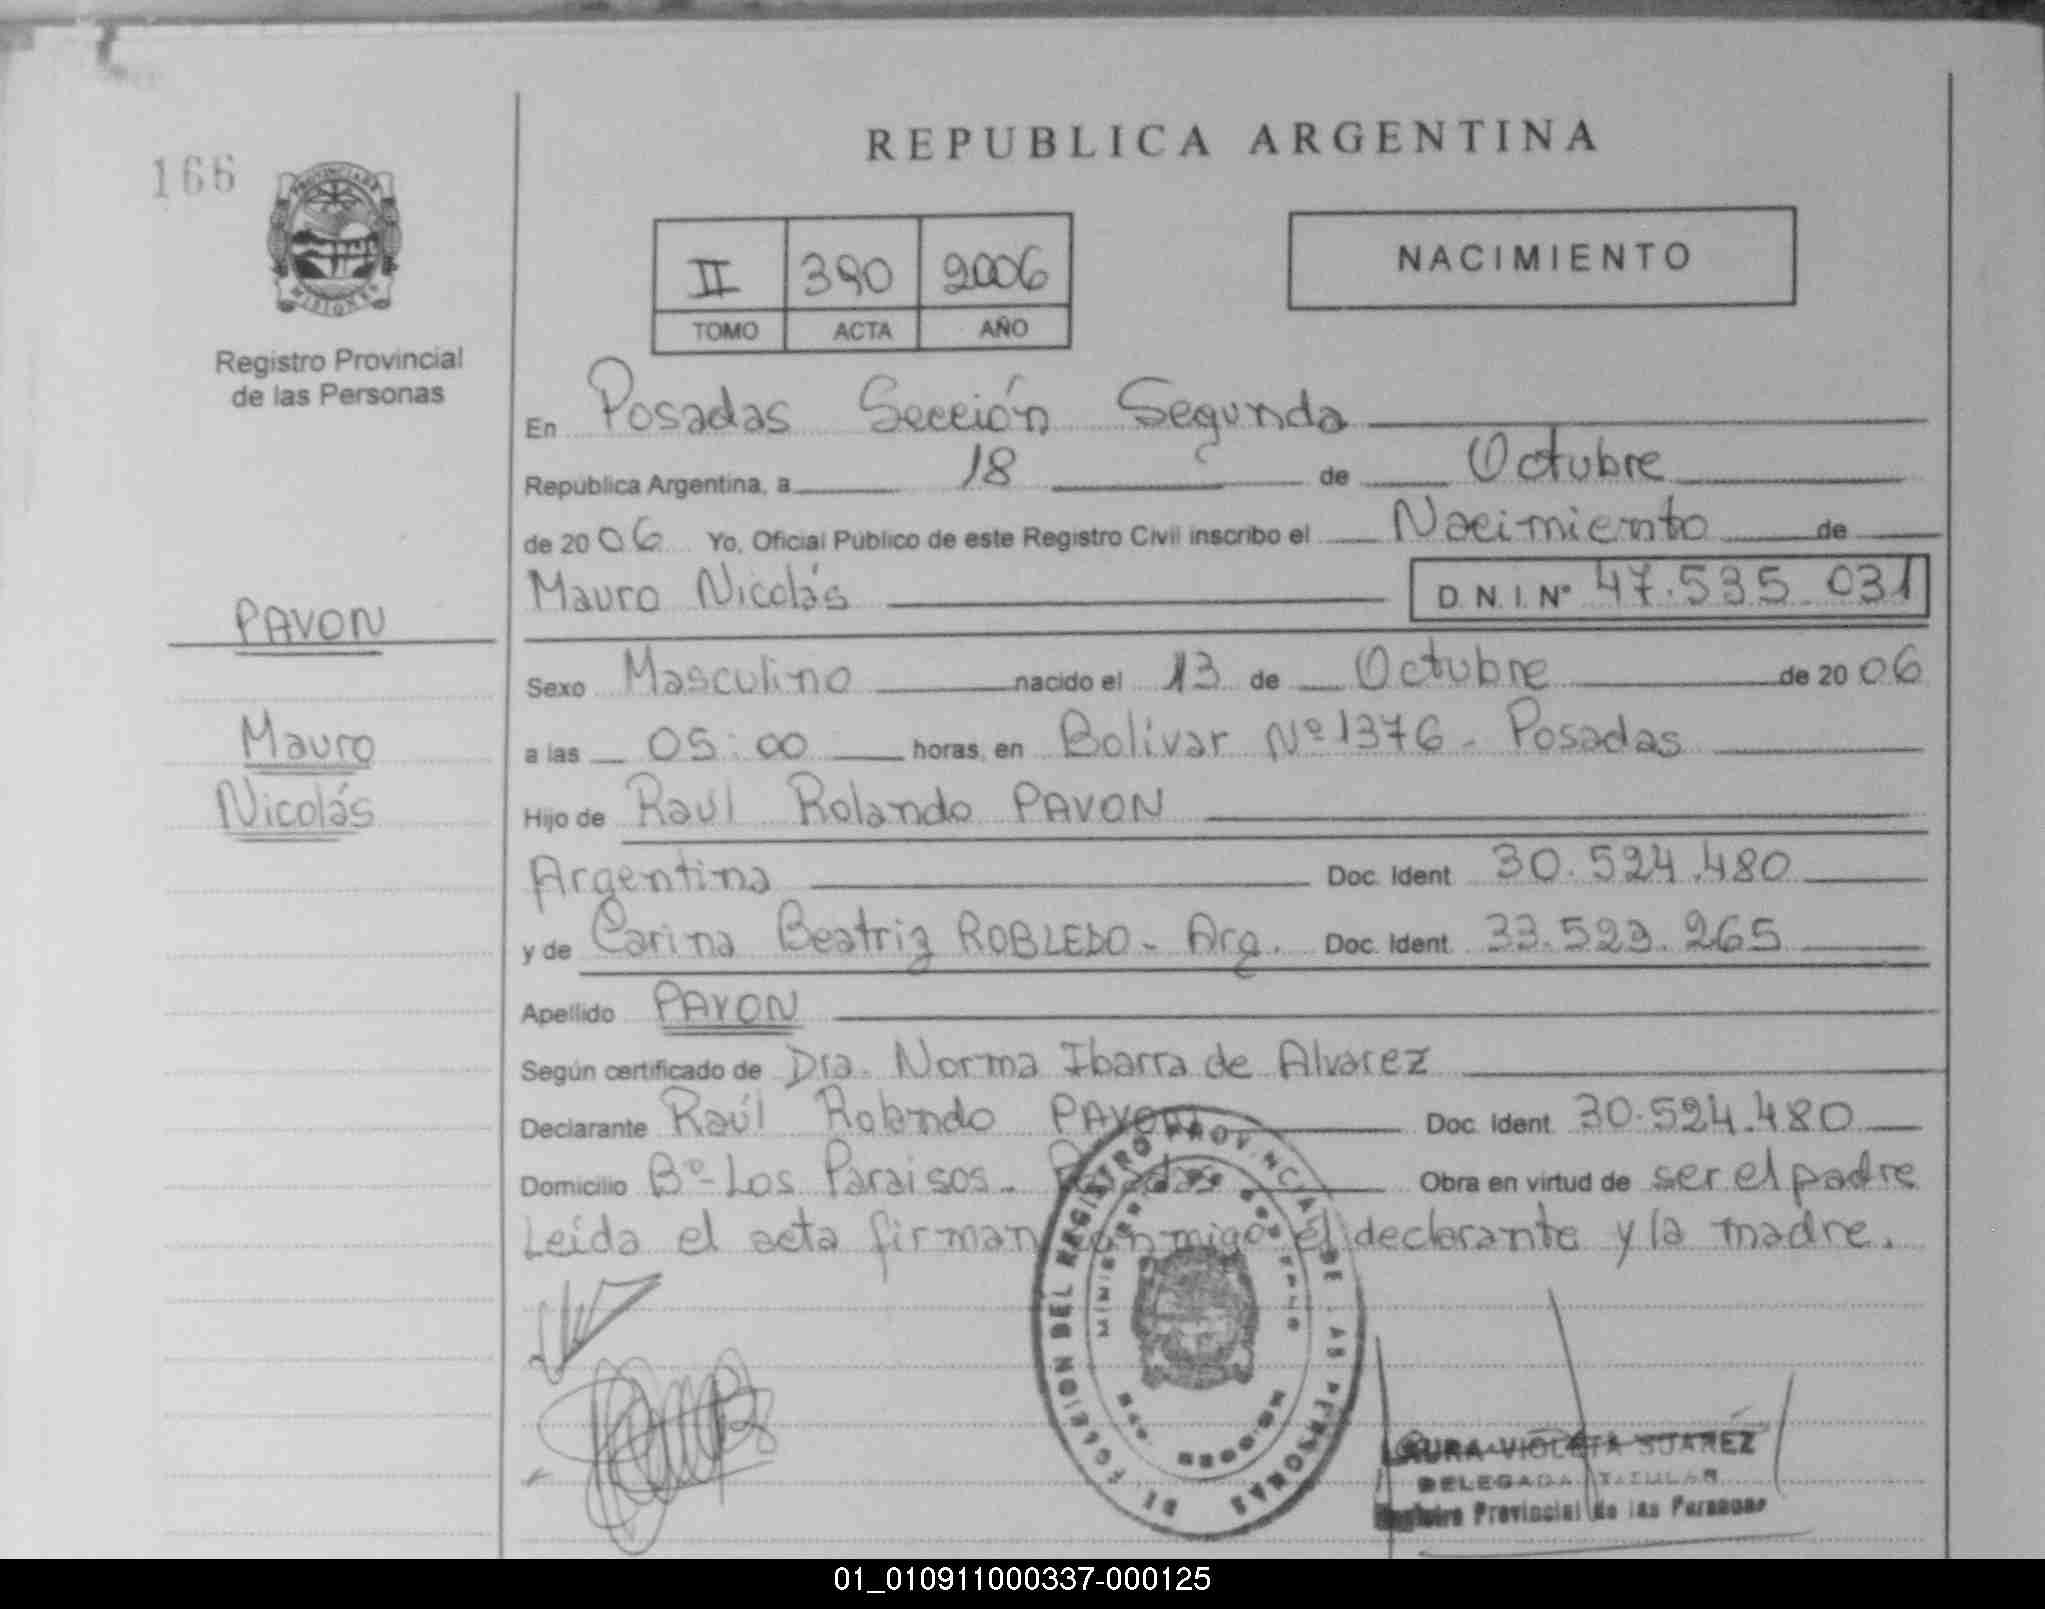 REPUBLICA ARGENTINA
166
PROVINCIA DE
MISIONES
Registro Provincial
de las Personas
II 390 2006
TOMO ACTA AÑO
NACIMIENTO
En Posadas Sección Segunda
Republica Argentina, a 18 de Octubre
de 2006 Yo, Oficial Público de este Registro Civil inscribo el Nacimiento de
Mauro Nicolás D.N.I. Nº 47.535.031
PAVON
Sexo Masculino nacido el 13 de Octubre de 2006
Mauro
a las 05:00 horas, en Bolivar Nº 1376 - Posadas
Nicolás
Hijo de Raúl Rolando PAVON
Argentina Doc. Ident 30.524.480
y de Carina Beatriz ROBLEDO - Arg. Doc. Ident. 33.523.265
Apellido PAVON
Según certificado de Dra. Norma Ibarra de Alvarez
Declarante Raúl Rolando PAVON Doc. Ident. 30.524.480
Domicilio Bº Los Paraisos - Posadas Obra en virtud de ser el padre
Leída el acta firman conmigo el declarante y la madre.
DEL REGISTRO PROVINCIAL DE LAS PERSONAS
LAURA VIOLETA SUAREZ
DELEGADA TITULAR
Registro Provincial de las Personas
01_010911000337-000125